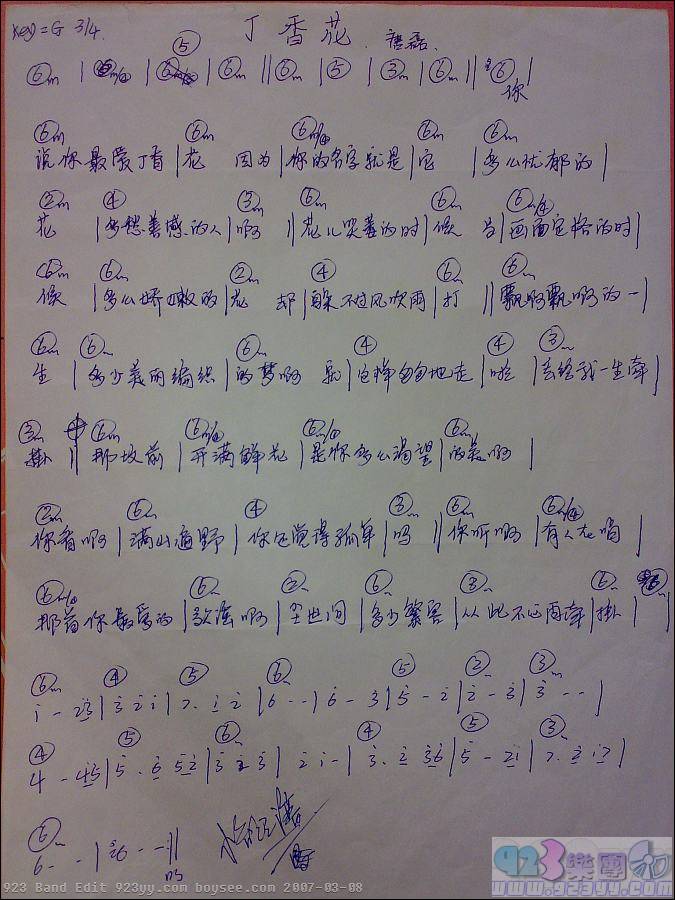 Key=G 3/4. 丁香花 . 唐磊.
⑤
⑥m | ⑥m/④ | ⑥m/④ | ⑥m || ⑥m | ⑤ | ③m | ⑥m || ⑥ |
你
⑥m ⑥m ⑥m/④ ⑥m ⑥m
说你最爱丁香 | 花 因为 | 你的名字就是 | 它 | 多么忧郁的 |
②m ④ ③m ⑥m ⑥m ⑥m/④
花 | 多愁善感的人 | 啊 || 花儿哭萎的时 | 候 当 | 画面定格的时 |
⑥m ⑥m ②m ④ ⑥m ⑥m
候 | 多么娇嫩的 | 花 却 | 躲不过风吹雨 | 打 || 飘啊飘啊的一 |
⑥m ⑥m ⑥m ④ ④ ③m
生 | 多少美丽编织 | 的梦啊 就 | 这样匆匆地走 | 啦 | 去给我一生牵 |
③m ⑥m ⑥m/④ ⑥m/④ ⑥m
挂 || 那坟前 | 开满鲜花 | 是你多么渴望 | 的美啊 |
②m ⑥m ④ ③m ⑥m ⑥m/④
你看啊 | 满山遍野 | 你还觉得孤单 | 吗 || 你听啊 | 有人在唱 |
⑥m/④ ⑥m ②m ⑥m ③m ⑥m
那首你最爱的 | 歌谣啊 | 尘世间 | 多少繁芜 | 从此不必再牵 | 挂 |
⑥m ④ ⑤ ⑥m ⑤ ②m ③m
i - 23 | 3 2 i | 7. i 2 | 6 - - | 6 - 3 | 5 - 2 | 2 - 3 | 3 - - |
④ ⑤ ⑥m ④ ⑤ ③m
4 - 45 | 5. 6 52 | 3 2 3 | 2 i - | 3. 2 36 | 5 - 2i | 7. 2 i7 |
⑥m
6 - - | 26 - - ||
吗
923 Band Edit 923yy.com boysee.com 2007-03-08
923樂團
www.923yy.com